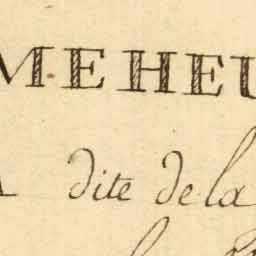 MEHEU
dite de la